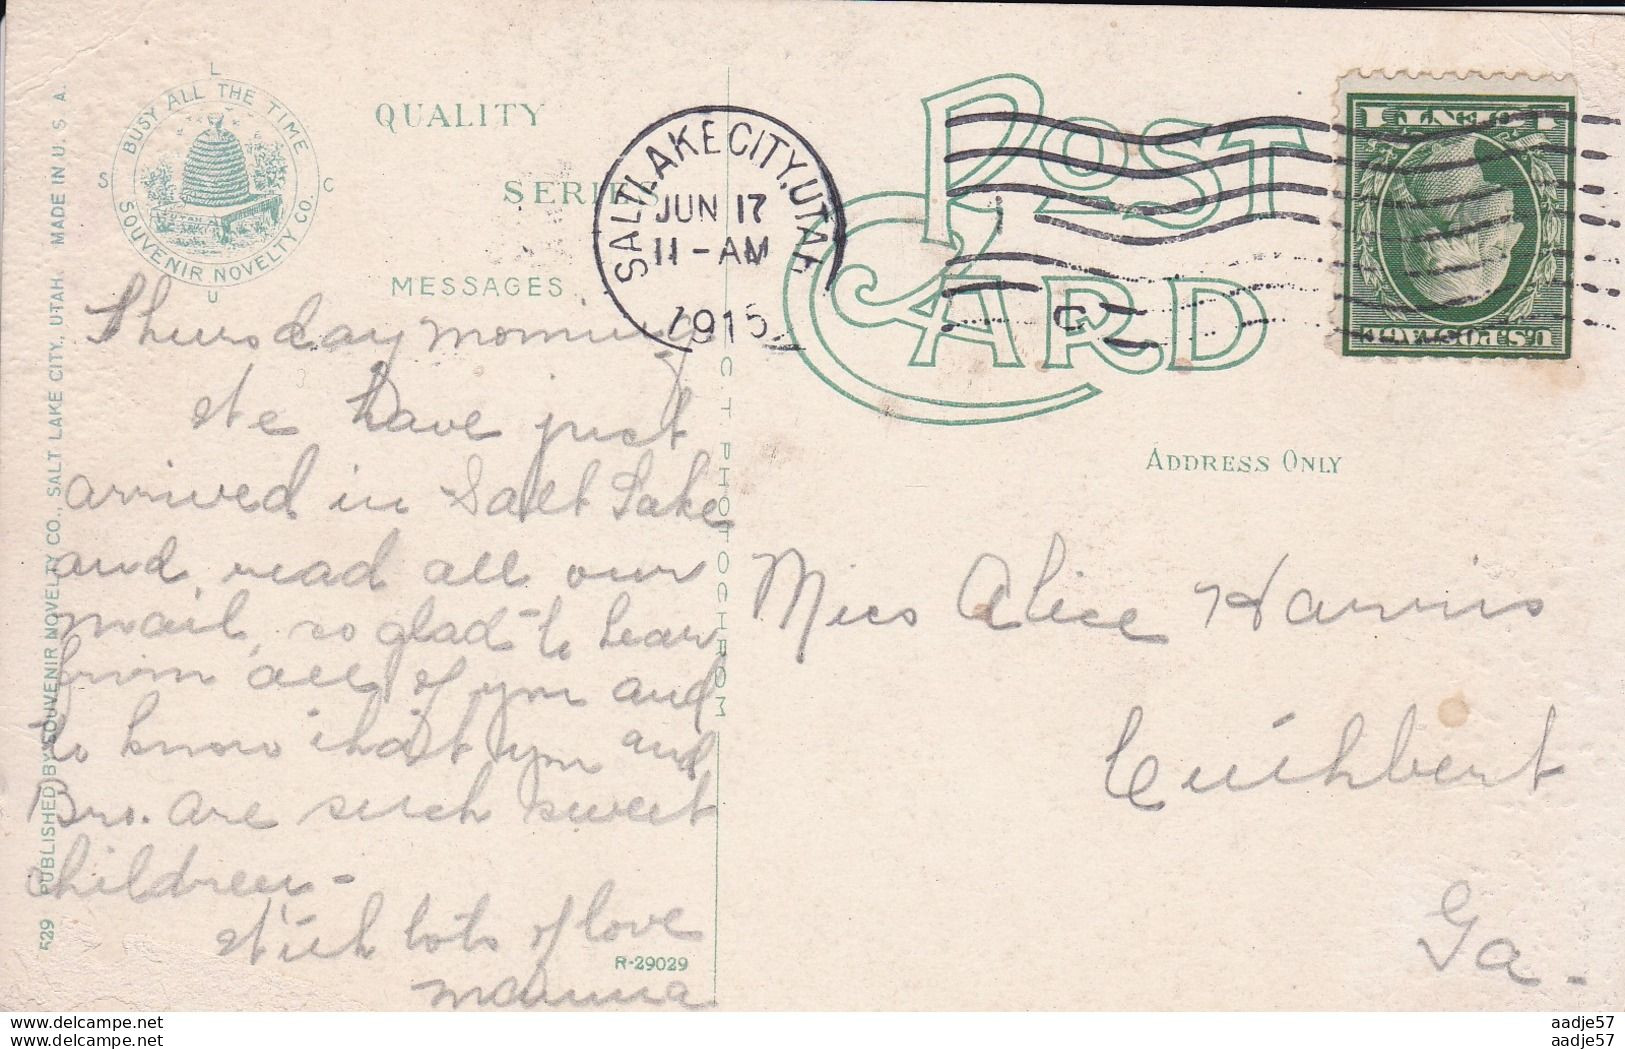 L
BUSY ALL THE TIME
S C
UTAH
SOUVENIR NOVELTY CO.
U
QUALITY
SERIES
MESSAGES
SALT LAKE CITY, UTAH
JUN 17
11-AM
1915
POST CARD
1 CENT 1
U.S. POSTAGE
ADDRESS ONLY
529 PUBLISHED BY SOUVENIR NOVELTY CO., SALT LAKE CITY, UTAH. MADE IN U. S. A.
C. T. PHOTOCHROM
Thursday morning
We have just
arrived in Salt Lake
and read all our
mail, so glad to hear
from all of you and
to know that you and
Bro. are such sweet
children -
With lots of love
Mamma
R-29029
Miss Alice Harris
Cuthbert
Ga.
www.delcampe.net
postcards
aadje57
aadje57